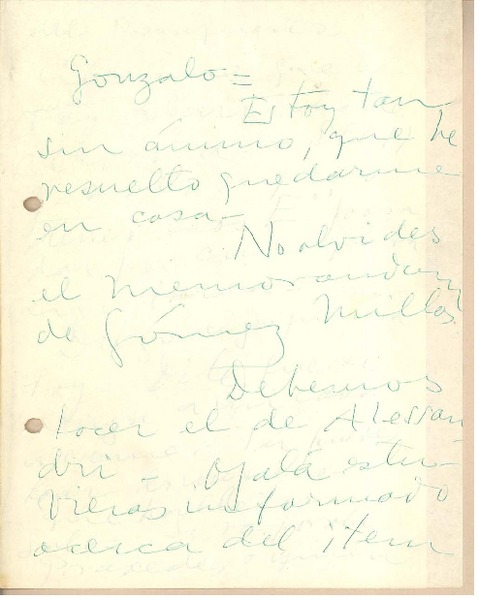 Gonzalo =
Estoy tan
sin ánimo, que he
resuelto quedarme
en casa -
No olvides
el memorandum
de Gómez Millas.
Debemos
hacer el de Alessan
dri - Ojalá estu-
vieras informado
acerca del item